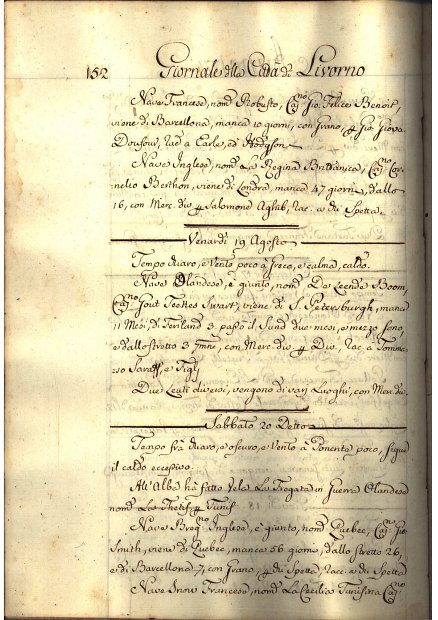 152 Giornale della Città di Livorno
Nave Francese, nom.ta Robusto, Cap.no Gio. Felice Benoit,
viene di Barcellona, manca 10 giorni, con Grano, p Gio: Giova.
Doufour, rac. a Earle, ed Hodgson.
Nave Inglese, nom.ta La Regina Brittanica, Cap.no Cor-
nelio Berthon, viene di Londra, manca 47 giorni, dallo
16, con Merc. div. p Salomond Aghib, rac. a di Spetta.
Venardi 19 Agosto
Tempo chiaro, e Vento poco à Greco, e calma, caldo.
Nave Olandese, è giunto, nom.ta De Leende Boom,
Cap.no Gout Teekes Swart, viene di S. Petersburgh, manca
11 Mesi, di 3 passo il Sund due mesi, e mezzo sono,
e dallo stretto 3 7mne, con Merc. div. p Div., rac. a Tomma-
so e Figlj
Due Leuti diversi, vengono di varj Luoghi, con Merc. div.
Sabbato 20 Detto
Tempo frà chiaro, e oscuro, e Vento à Ponente poco, segue
il caldo eccessivo.
All'Alba hà fatto Vela La Fregata in Guerra Olandese
nom.ta La Thetis, p Tunis
Nave Breg.no Inglese, è giunto, nom.ta Quebec, Cap.no Gio
Smith, viene di Quebec, manca 56 giorni, dallo stretto 26,
e di Barcellona 7, con Grano, p di Spetta, racc. a di Spetta
Nave Snow Francese, nom.ta La Cecilia Tunisina Cap.no